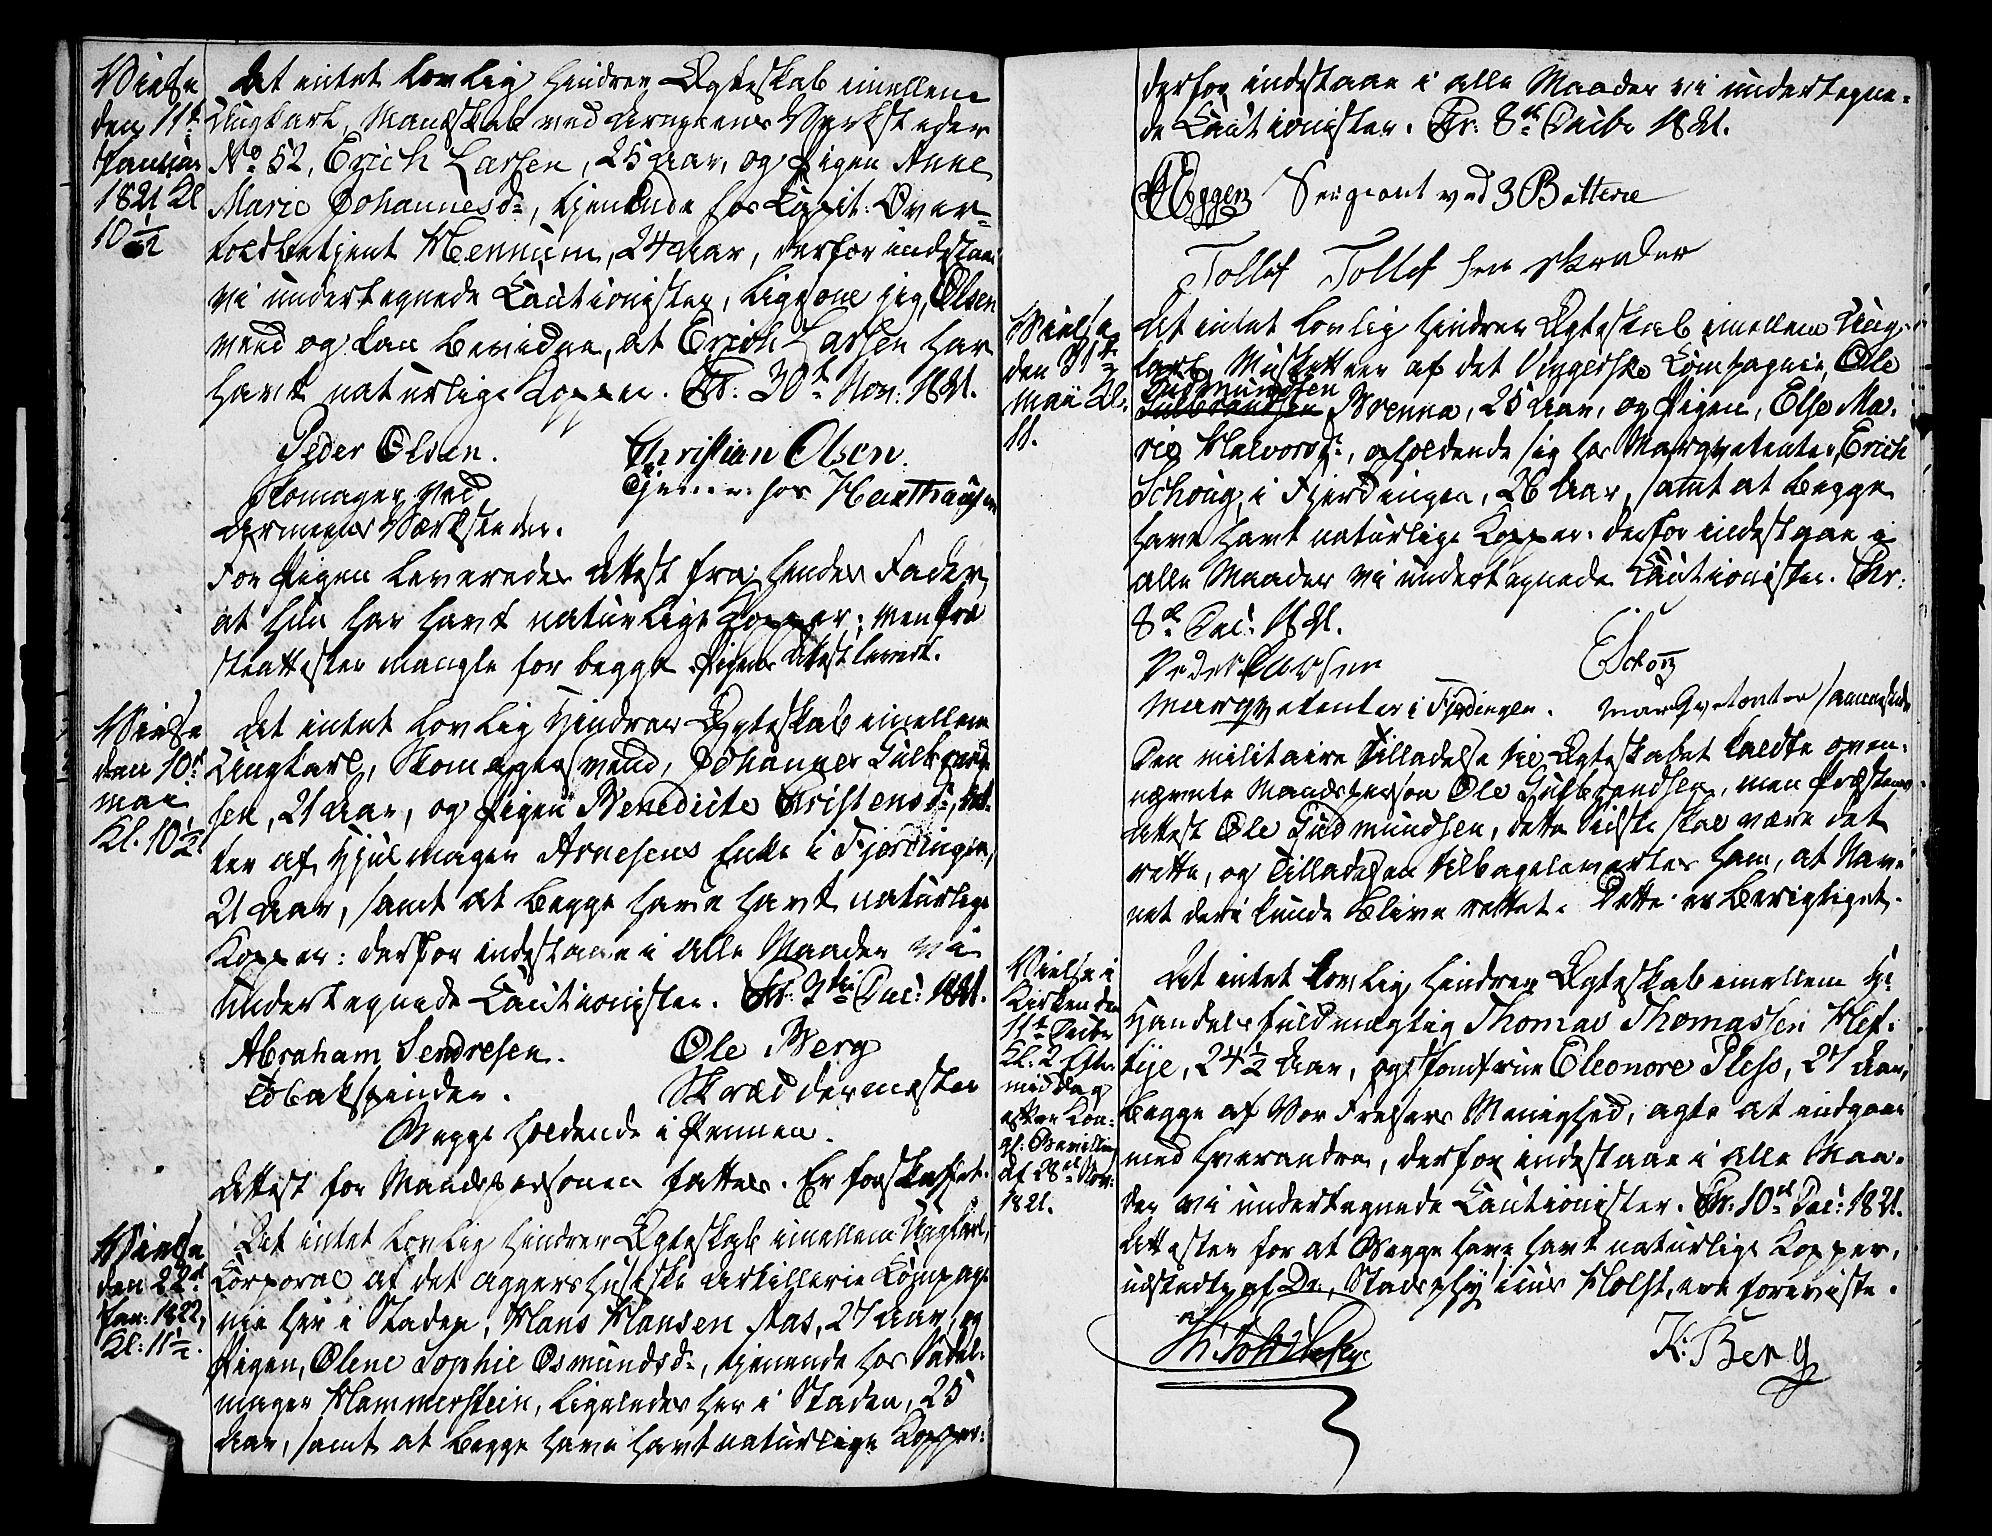 Vielse
den 11te
Januar
1821 Kl
10 1/2
Det intet lovlig hindrer Ægteskab imellem
Ungkarl, Mandskab ved Armeens Værksteder
No 52, Erich Larsen, 25 Aar, og Pigen Anne
Marie Johannesdr, tjenende hos Over-
toldbetjent Mennum, 24 Aar, derfor indestaae
vi undertegnede Cautionister, ligesom jeg, Olsen
veed og kan bevidne, at Erich Larsen har
havt naturlige Kopper. Chr: 30te Nov: 1821.
Peder Olsen. Christian Olsen.
Skomager ved Tjener hos Haxthausen
Armeens Værksteder.
For Pigen leveredes Attest fra hendes Fader,
at hun har havt naturlige Kopper; men Præ
steattester mangle for begge. Pigens Attest leveret.
Vielse
den 10de
mai
Kl. 10 1/2
Det intet lovlig hindrer Ægteskab imellem
Ungkarl, Skomagersvend, Johannes Gulbrand
sen, 21 Aar, og Pigen Benedicte Christensdr, Dat-
ter af Hjulmager Arnesens Enke i Fjerdingen,
21 Aar, samt at begge have havt naturlige
Kopper: derfor indestaae i alle Maader vi
undertegnede Cautionister. Chr: 3die Dec: 1821.
Abraham Sendresen. Ole Berg
Tobakspinder. Skræddermester
Begge holdende i Pennen.
Attest for Mandspersonen fattes. Er forskaffet.
Vielse
den 22de
Jan: 1822,
Kl: 11 1/2.
Det intet lovlig hindrer Ægteskab imellem Ungkarl,
Corporal af det aggershusiske Artillerie Compag
nie her i Staden, Hans Hansen Aas, 27 Aar, og
Pigen, Olene Sophie Osmundsdr, tjenende hos Sadel-
mager Hammerstein, ligeledes her i Staden, 25
Aar, samt at begge have havt naturlige Kopper:
derfor indestaae i alle Maader vi undertegne-
de Cautionister. Chr: 8de Decbr 1821.
Eggen Sergeant ved 3 Batterie
Tollef Tollefsen Skræder
Vielse
den 31te
maii Kl.
11.
Det intet lovlig hindrer Ægteskab imellem Ung-
karl, Musketteer af det Vingerske Compagnie, Ole
Gudmundsen
Gulbrandsen Brenna, 25 Aar, og Pigen, Else Ma-
rie Halvorsdr, opholdende sig hos Marqvetenter, Erich
Schoug, i Fjerdingen, 26 Aar, samt at begge
have havt naturlige Kopper. derfor indestaae i
alle Maader vi undertegnede Cautionister. Chr:
8de Dec: 1821.
Peder Larsen
Marqvetenter i Fjerdingen. Marqvetenter sammesteds
Den militaire Tilladelse til Ægteskabet kaldte oven-
nævnte Mandsperson Ole Gulbrandsen, men Præstens
Attest Ole Gudmundsen, dette sidste skal være det
rette, og Tilladelsen tilbagelevertes ham, at Nav-
net deri kunde blive rettet. Dette er berigtiget.
Vielse i
Kirken den
11te Decbr
Kl. 2 Efter
middag
efter Kon-
gl: Bevilling
af 28de Nov:
1821.
Det intet lovlig hindrer Ægteskab imellem Hr
Handelsfuldmægtig Thomas Thomassen Hef-
tye, 24 1/2 Aar, og Jomfrue Eleonore Pless, 27 Aar,
begge af Vor Frelsers Menighed, agte at indgaae
med hverandre, derfor indestaae i alle Maa-
der vi undertegnede Cautionister. Chr: 10de Dec: 1821.
Attester for at begge have havt naturlige Kopper,
udstedte af Dr., Stadsphysicus Holst, ere foreviste.
K: Berg